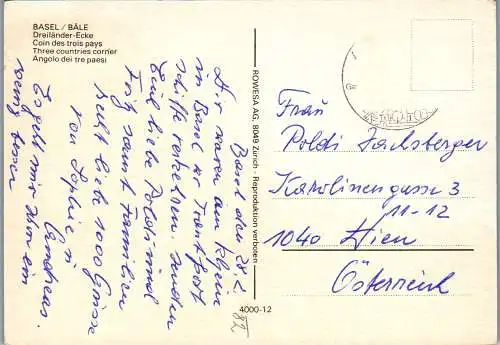 BASEL / BÂLE
Dreiländer-Ecke
Coin des trois pays
Three countries corner
Angolo dei tre paesi
Basel den 28. 2.
Wir waren am
in Basel wo Transport
schiffe verkehren. senden
Euch liebe Poldi und
Fritz samt Familien
recht liebe 1000 Grüsse
von Sophie u
Andreas.
Es geht mir schon ein
wenig besser
ROWESA AG, 8049 Zürich - Reproduktion verboten
4000-12
82
Frau
Poldi
Karolinengasse 3
11-12
1040 Wien
Österreich